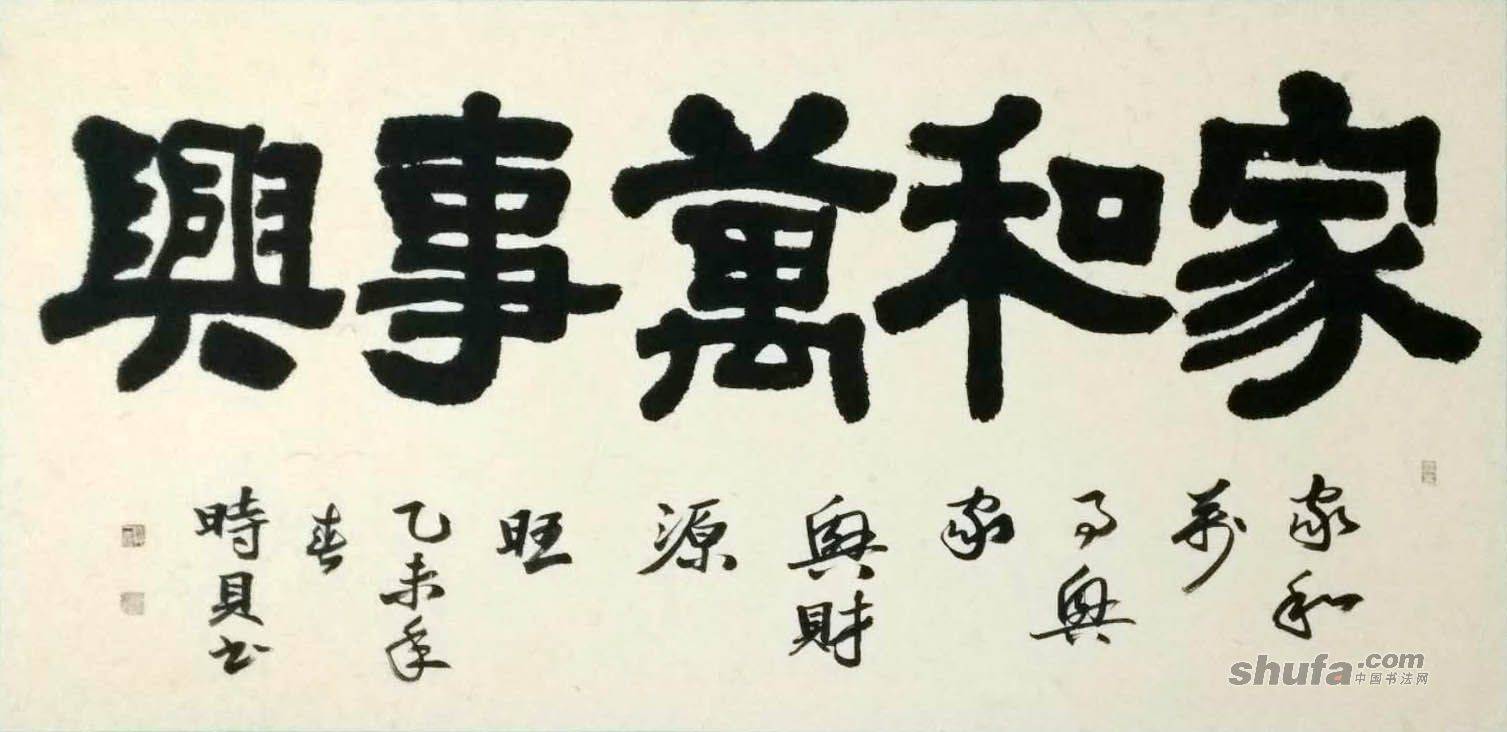 家和萬事興
家和
萬
事興
家
興財
源
旺
乙未年
春
時貝书
shufa.com
中国书法网